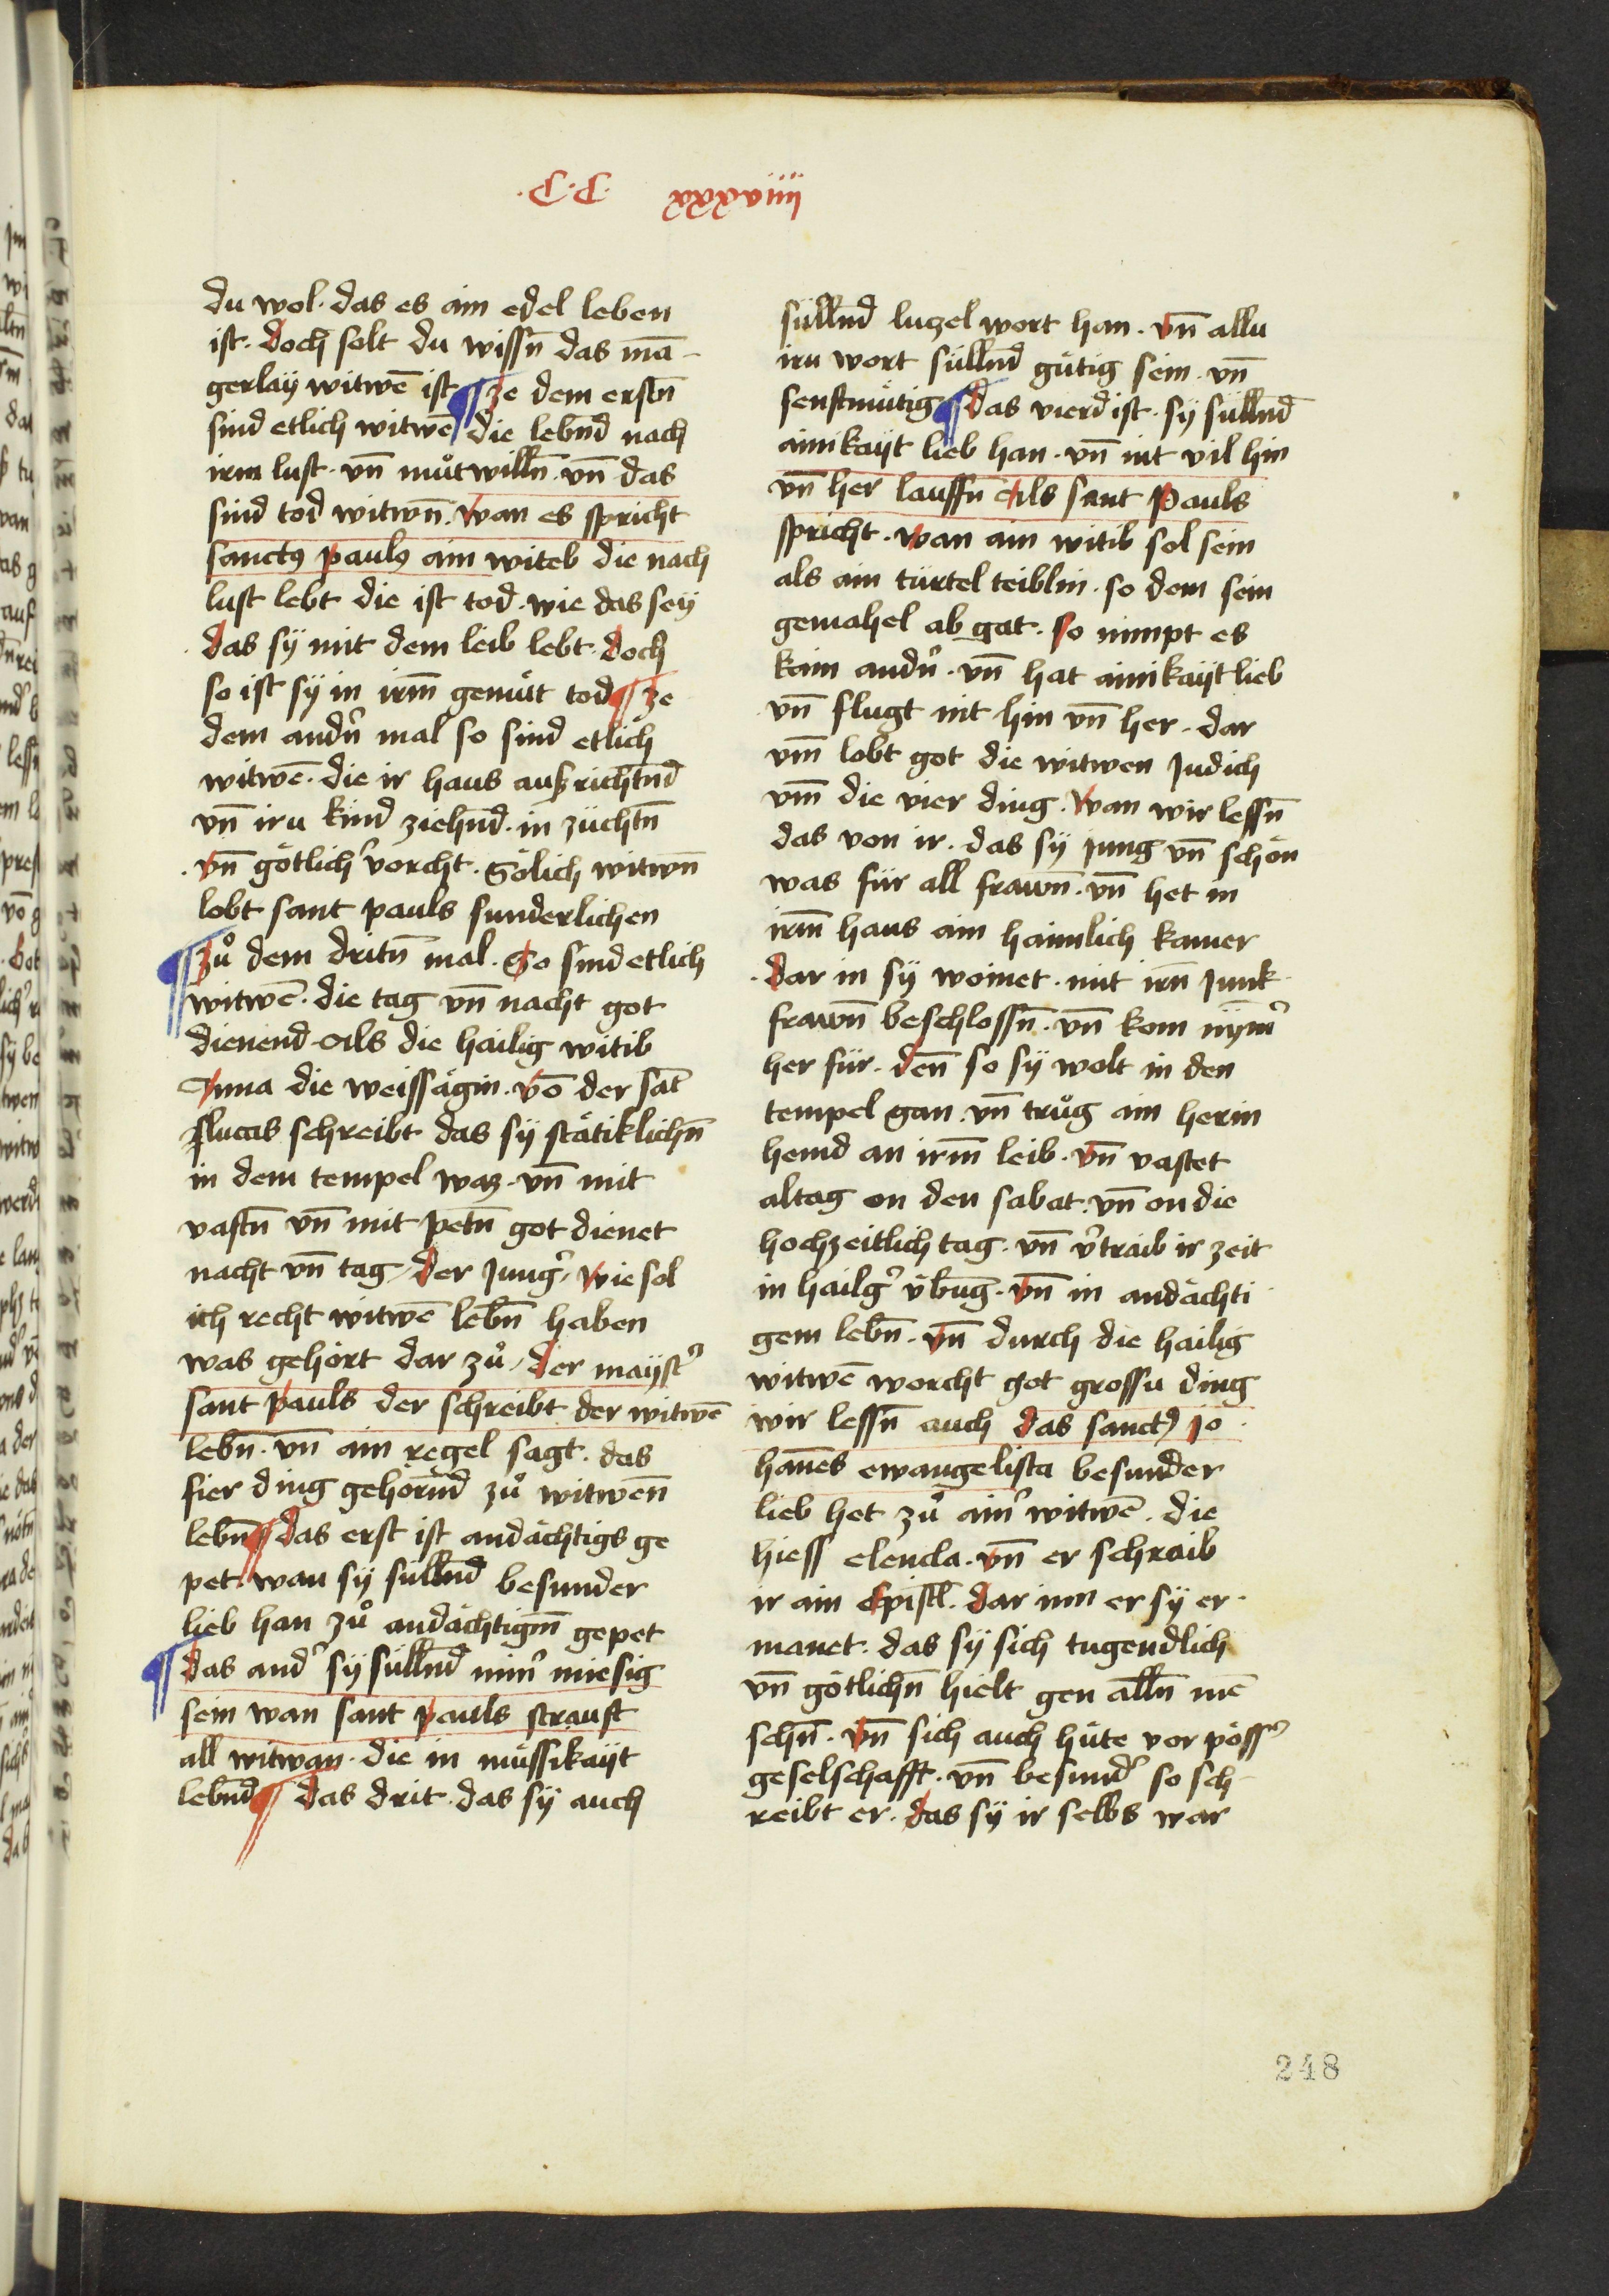 ·C·C· xxxxviiij
du wol · das es ain edel leben
ist · doch solt du wissn̄ das mā-
gerlaÿ witwē ist ¶ ze dem erstn̄
sind etlich witwē die lebn̄d nach
irm lust · vn̄ muͦtwilln̄ · vn̄ das
sind tod witwn̄ · wan es spricht
sanctꝰ paulꝰ ain witeb die nach
lust lebt die ist tod · wie das seÿ
das sÿ mit dem leib lebt · doch
so ist sÿ in irm̄ gemuͤt tod ¶ ze
dem andn̄ mal so sind etlich
witwē · die ir haus außrichtn̄d
vn̄ iru kind ziehn̄d · in züchtn̄
· vn̄ goͤtlich̓ vorcht · Soͤlich witwn̄
lobt sant pauls sunderlichen
¶ zuͦ dem dritn̄ mal · So sind etlich
witwē · die tag vn̄ nacht got
dienend · Als die hailig witib
Anna die weissagin · vō der sāt
lucas schreibt das sÿ staͤtiklichn̄
in dem tempel waz · vn̄ mit
vastn̄ vn̄ mit petn̄ got dienet
nacht vn̄ tag / der Jung̓ / wie sol
ich recht witwē lebn̄ haben
was gehoͤrt dar zuͦ / der maÿst̓
sant pauls der schreibt der witwē
lebn̄ · vn̄ ain regel sagt · das
fier ding gehoͤrn̄d zuͦ witwenn̄
lebn̄ ¶ das erst ist andaͤchtigs ge
pet · wan sÿ sülln̄d besunder
lieb han zuͦ andaͤchtigm̄ gepet
¶ das and̓ sÿ sülln̄d nim̓ miesig
sein wan sant pauls strauft
all witwan · die in muͤssikaÿt
lebn̄d ¶ das drit · das sÿ auch
sülln̄d lutzel wort han · vn̄ allu
iru wort sülln̄d guͤtig sein · vn̄
senftmuͤtig ¶ das vierd ist · sÿ sülln̄d
ainikaÿt lieb han · vn̄ nit vil hin
vn̄ her lauffn̄ Als sant Pauls
spricht · wan ain witib sol sein
als ain türtel teiblin · so dem sein
gemahel ab gat · so nimpt es
kain andn̄ · vn̄ hat ainikaÿt lieb
vn̄ flugt nit hin vn̄ her · dar
vm̄ lobt got die witwen Judich
vm̄ die vier ding · wan wir lessn̄
das von ir · das sÿ jung vn̄ schoͤn
was für all frawn̄ · vn̄ het in
irm̄ haus ain haimlich kamer
· dar in sÿ woinet · mit irn̄ Junk-
frawn̄ beschlossn̄ · vn̄ kom nÿm̓
her für · den̄ so sÿ wolt in den
tempel gan · vn̄ truͦg ain herin
hemd an irm̄ leib · vn̄ vastet
altag on den sabat · vn̄ on die
hochzeitlich tag · vn̄ v̓traib ir zeit
in hailg̓ vͤbuḡ · vn̄ in andaͤchti
gem lebn̄ · vn̄ durch die hailig
witwē worcht got grossu ding
wir lessn̄ auch das sanctꝰ jo
han̄es ewangelista besunder
lieb het zuͦ ain̓ witwē · die
hiess elencla · vn̄ er schraib
ir ain Epistl · dar inn er sÿ er-
manet · das sÿ sich tugendlich
vn̄ goͤtlichn̄ hielt gen alln̄ mē
schn̄ · vn̄ sich auch huͤte vor poͤss̓
geselschafft · vn̄ besund̓ so sch-
reibt er · das sÿ ir selbs war
248